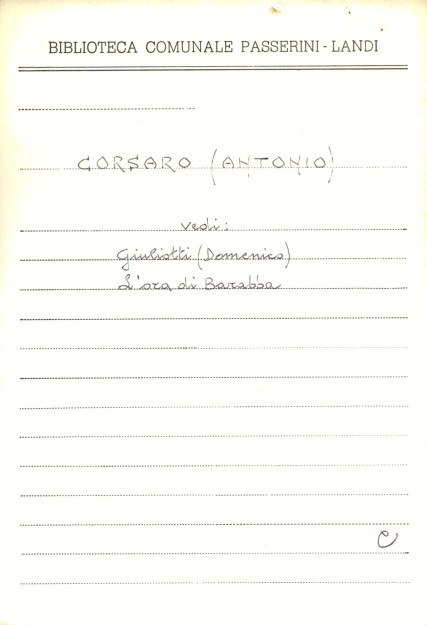 BIBLIOTECA COMUNALE PASSERINI-LANDI
CORSARO (ANTONIO)
vedi:
Giuliotti (Domenico)
L'ora di Barabba
C